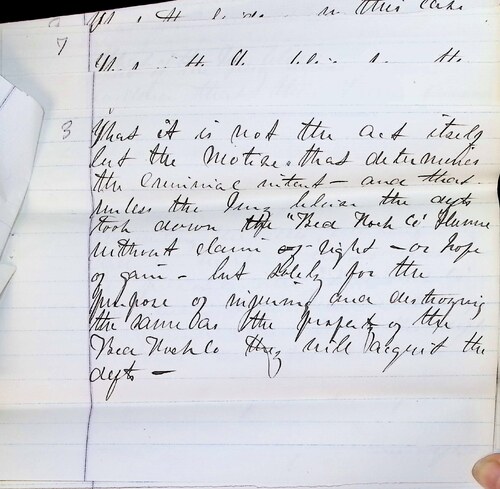 in this case
7
8 That it is not the act itself
but the motive that determines
the Criminal intent - and that
unless the Jury believe the defts
took down the "Bed Rock Co" flume
without claim of right - or hope
of gain - but solely for the
purpose of injuring and destroying
the same as the property of the
Bed Rock Co they will acquit the
defts -